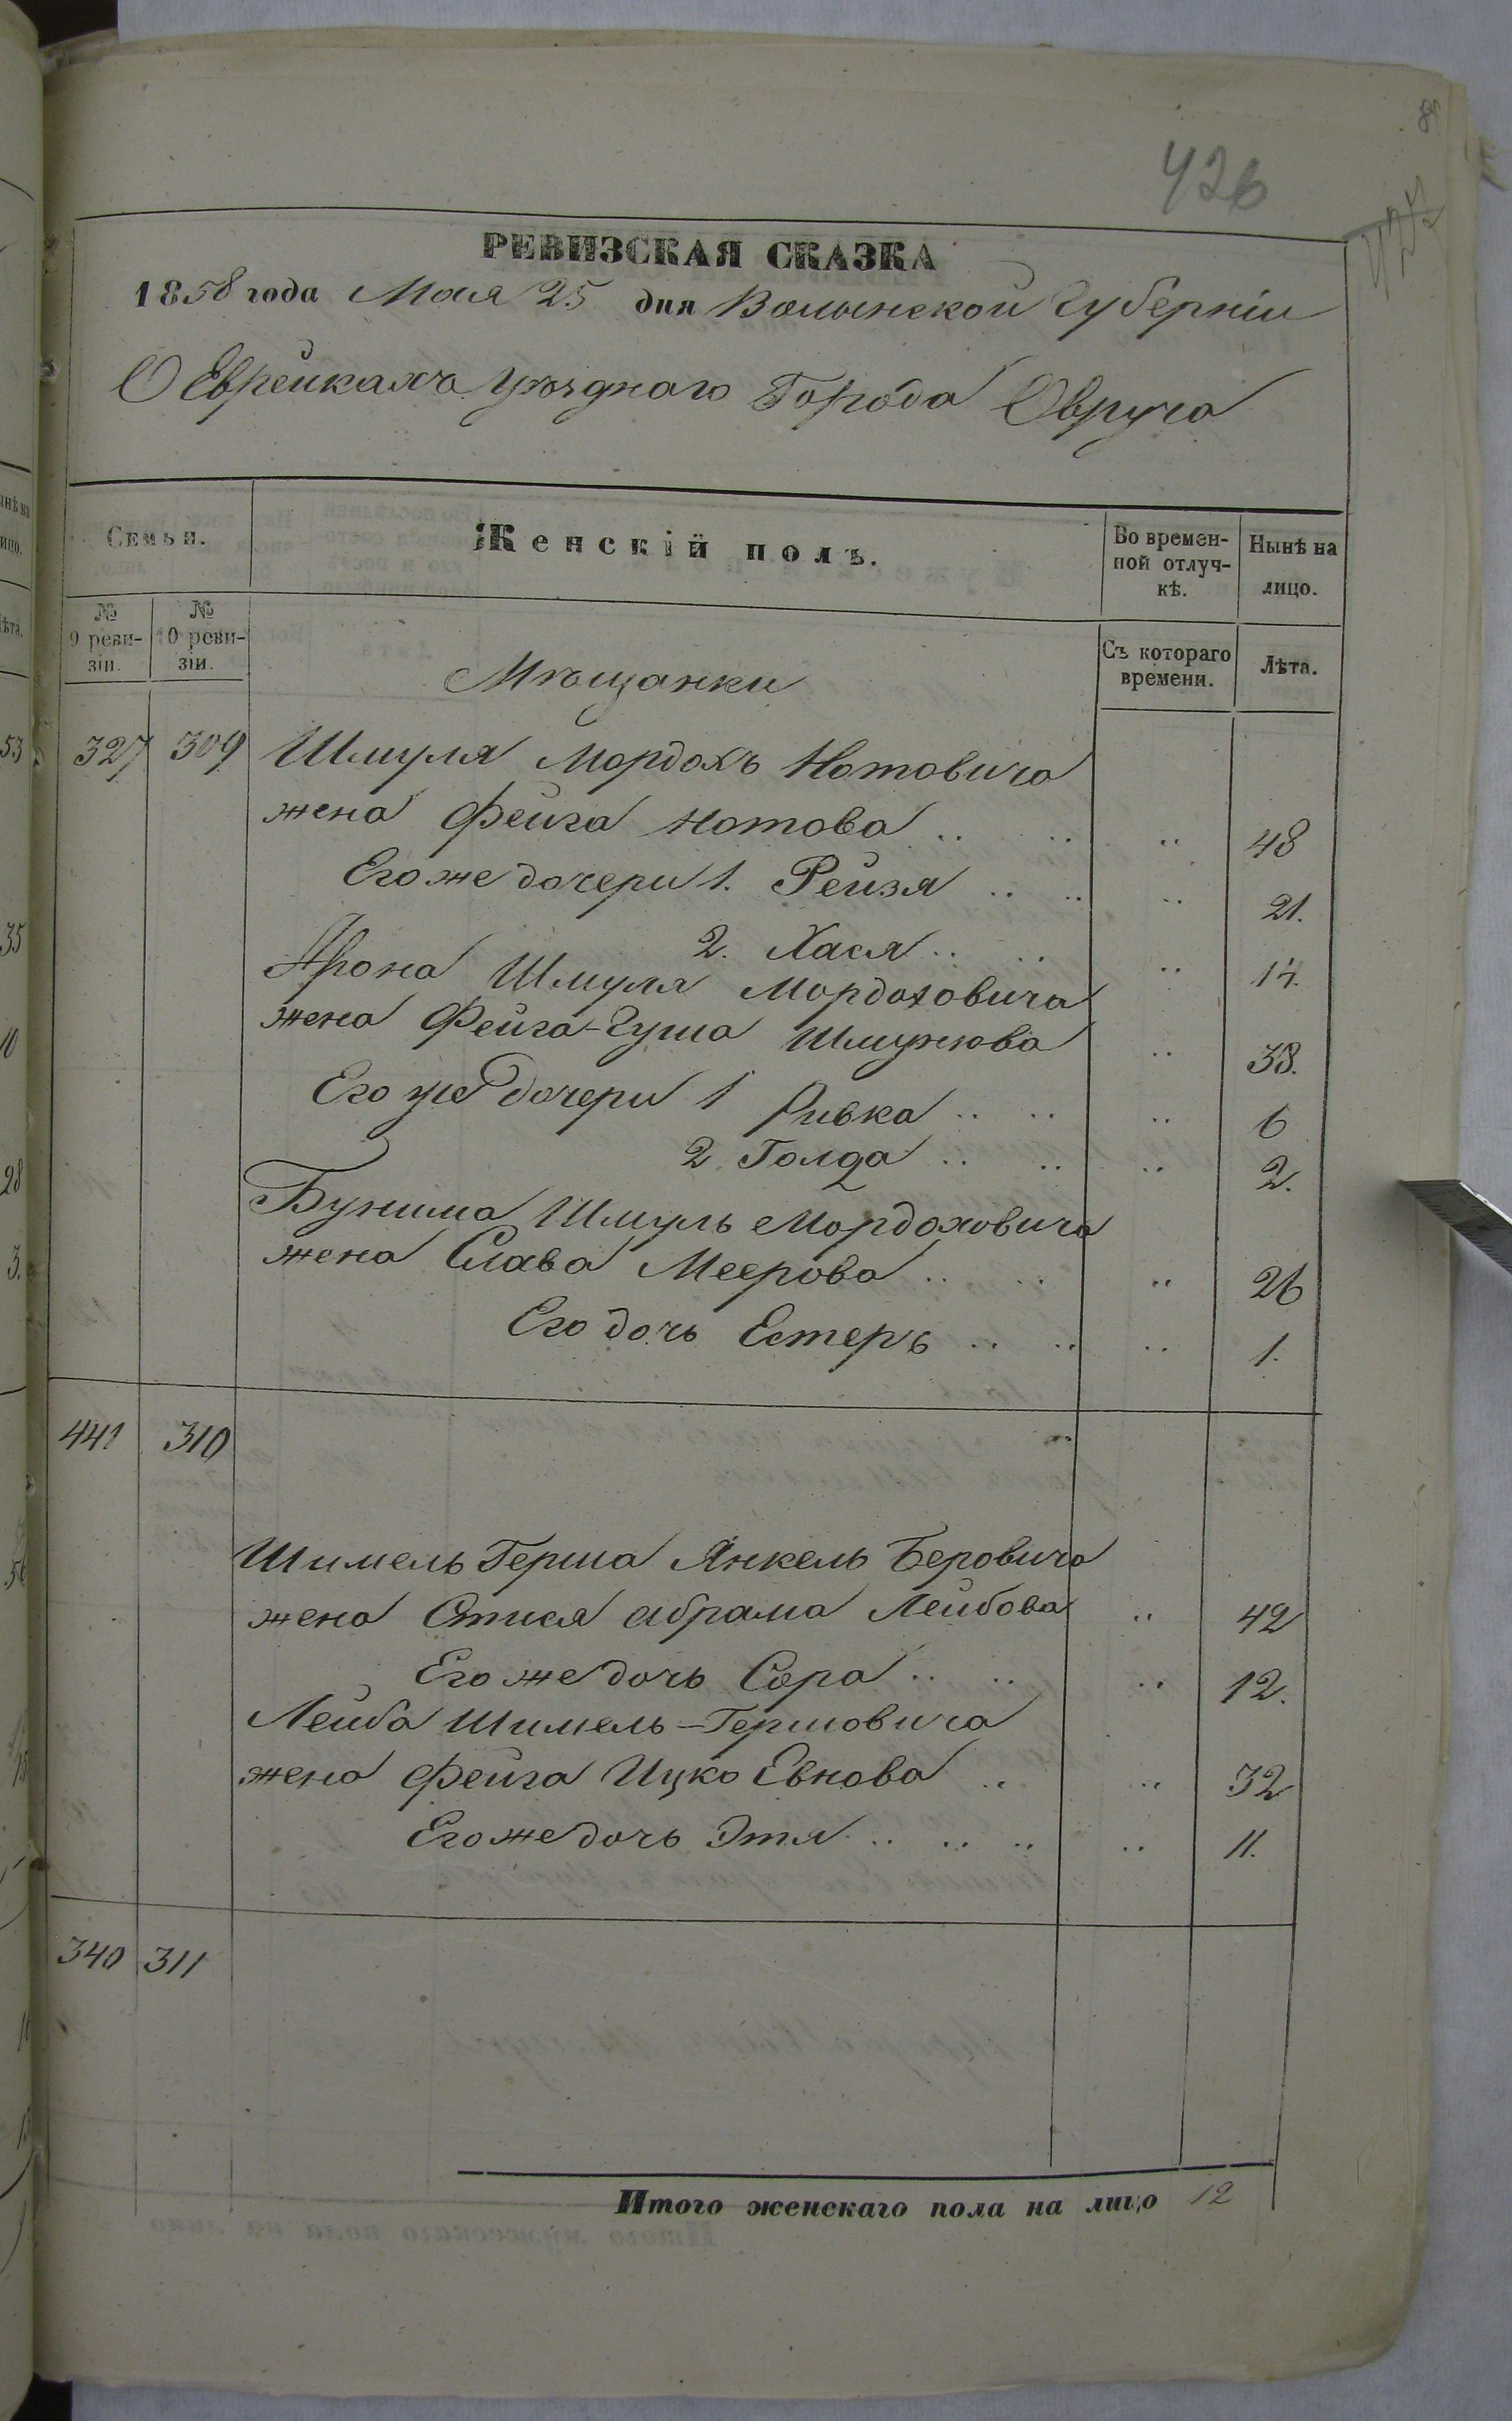 426
РЕВИЗСКАЯ СКАЗКА
1858 года Мая 25 дня Волынской Губерніи
О Еврейкахъ Уѣзднаго Города Овруча
Семьи.
Женскій полъ.
Во времен-
ной отлуч-
кѣ.
Нынѣ на
лицо.
№
9 реви-
зіи.
№
10 реви-
зіи.
Съ котораго
времени.
Лѣта.
Мѣщанки
327 309 Шмуля Мордохъ Нотовича
жена Фейга Нотова .. .. .. 48
Его же дочери 1. Рейзя .. .. .. 21.
2. Хася .. .. .. 14.
Арона Шмуля Мордоховича
жена Фейга-Гуша Шмулюва .. 38.
Его же дочери 1 Ривка .. .. .. 6
2. Голда .. .. .. 2.
Бунима Шмуль Мордоховича
жена Слава Меерова .. .. .. 26
Его дочь Естеръ .. .. .. 1.
441 310
Шимель Герша Янкель Беровича
жена Абрама Лейбова .. 42
Его же дочь Сора .. .. .. 12.
Лейба Шимель-Гершовича
жена Фейга Ицко Евнова .. .. 32
Его же дочь Этя .. .. .. .. 11.
340 311
Итого женскаго пола на лицо 12